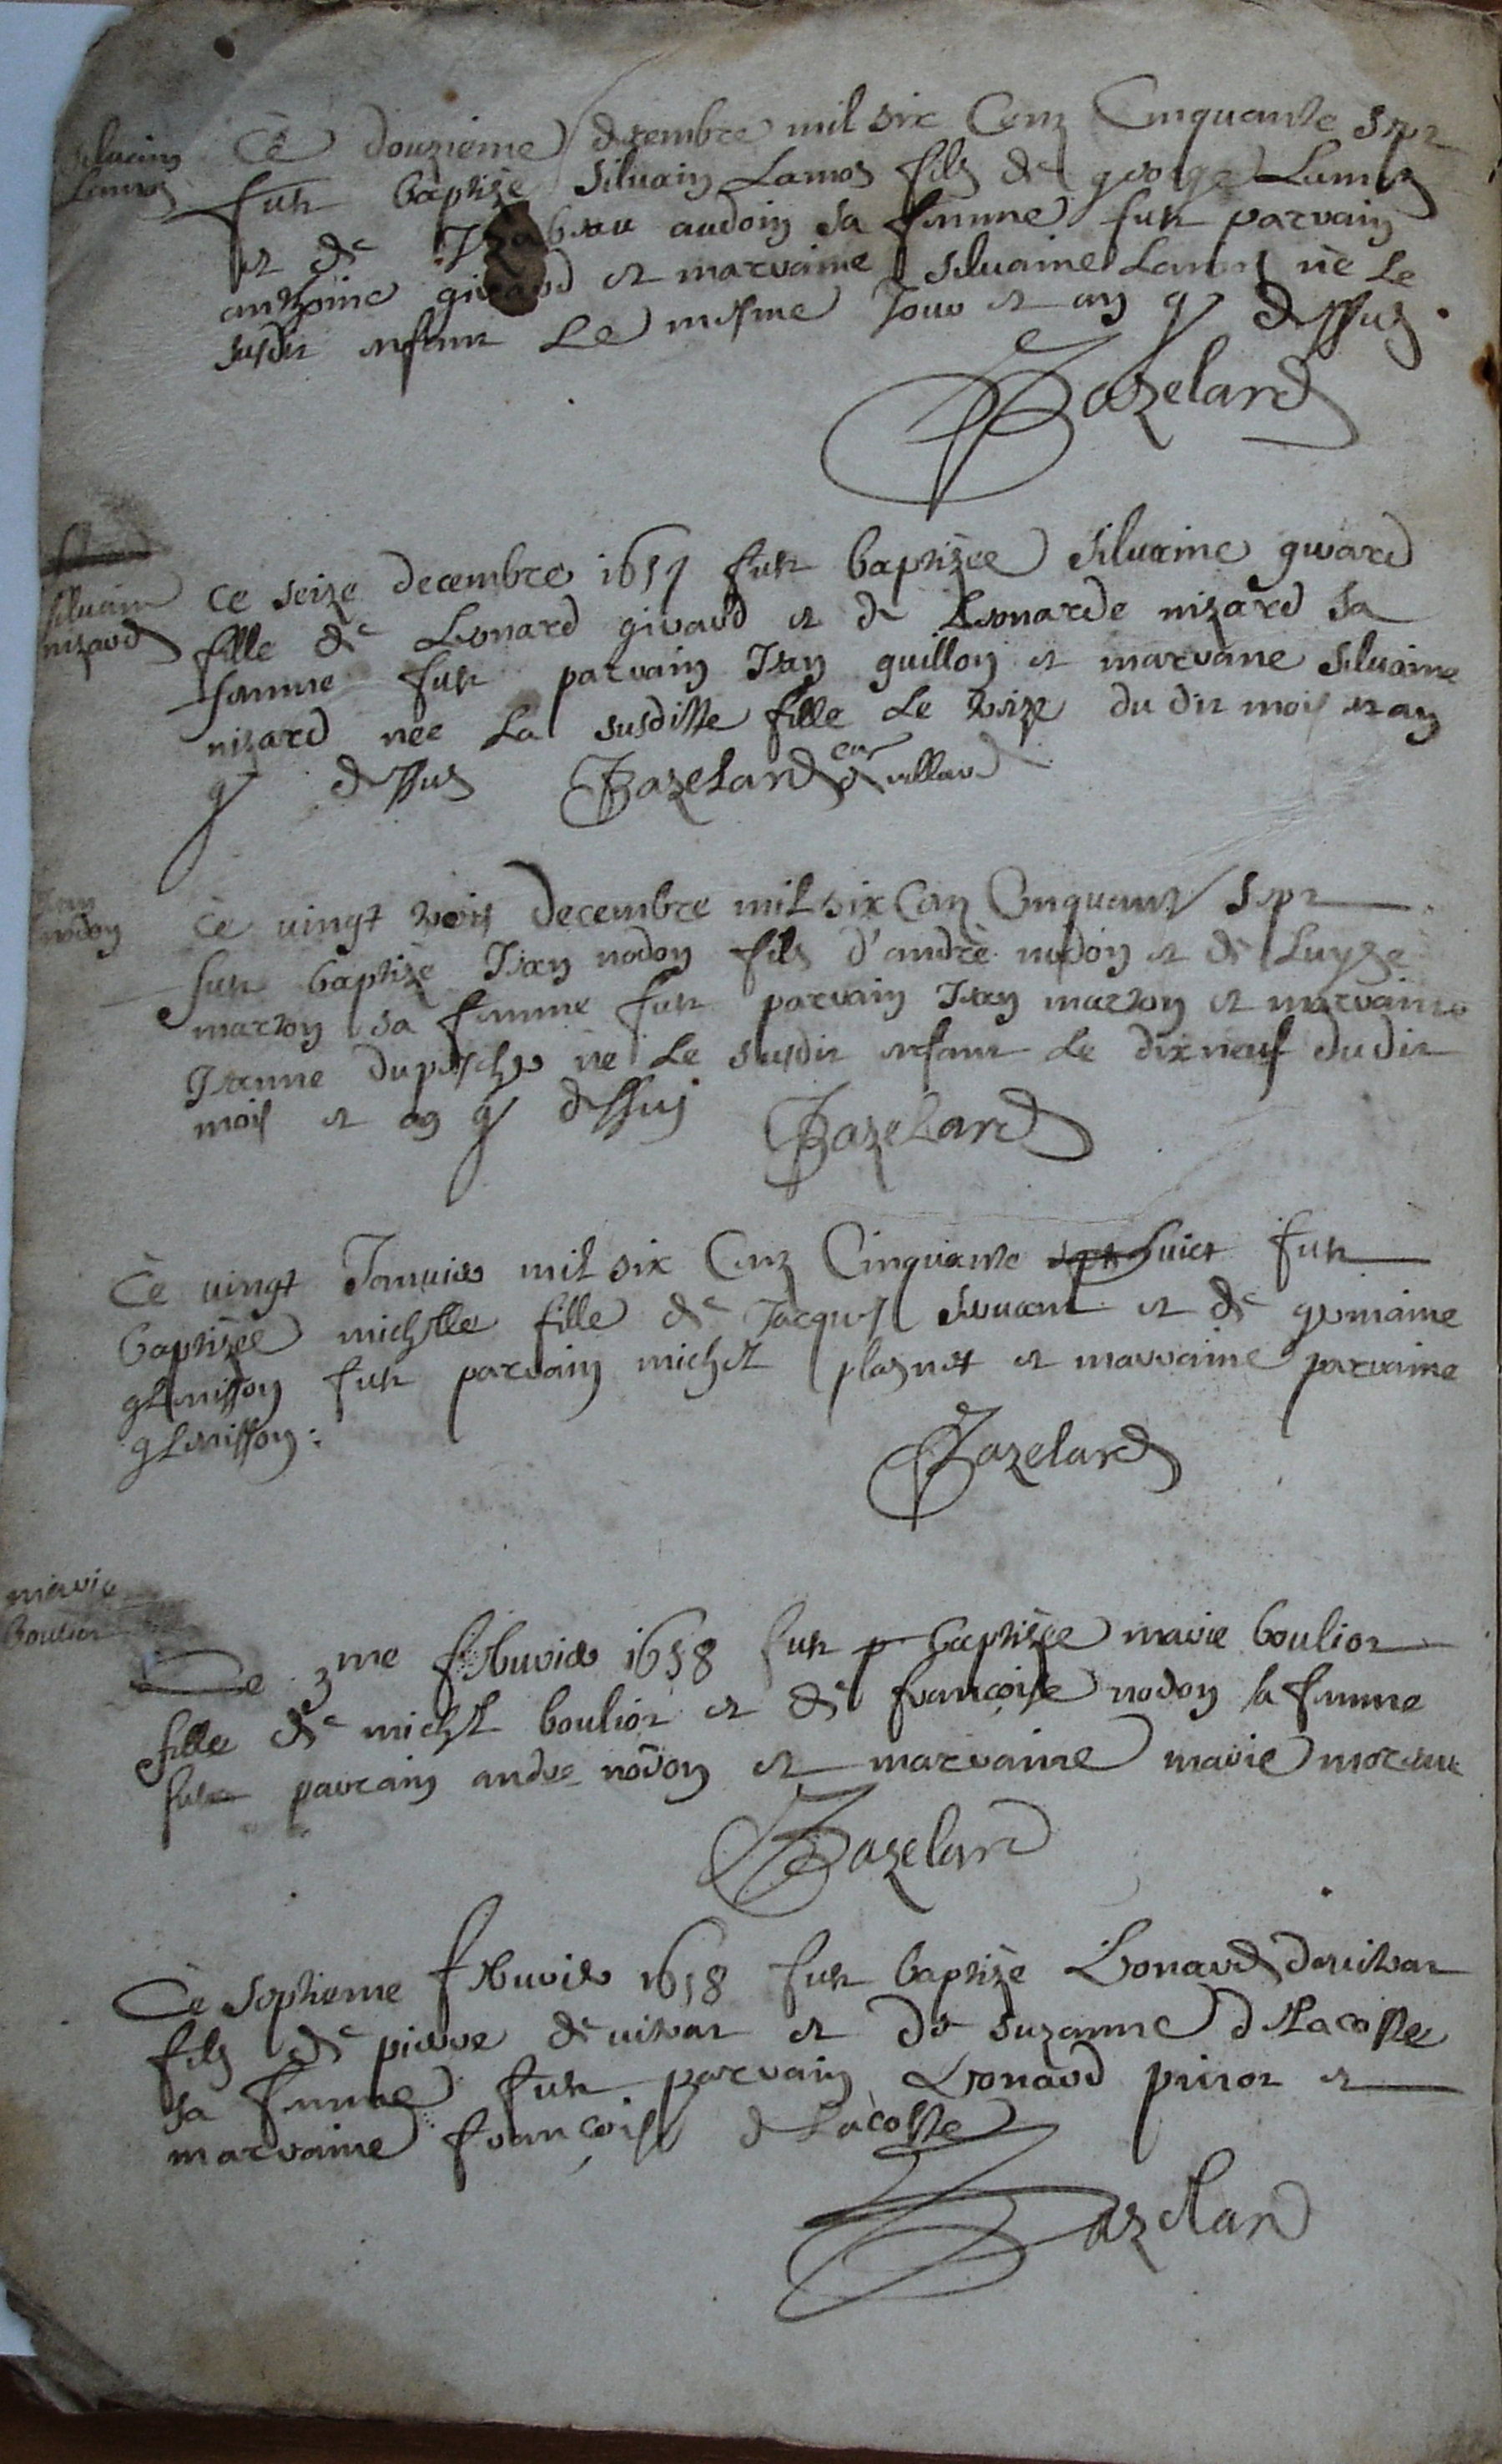 silvain
Lamos
Ce douzieme desembre mil six Cens Cinquante sept
fut baptizé silvain Lamos fils de george Lamos
et de Izabeau audoin sa femme fut parrain
anthoine giraud et marraine silvaine Lamos né le
susdit enfant Le mesme Jour et an q dessus .
Bazelard
silvain
nizard
ce seize decembre 1657 fut baptizée silvaine girard
fille de Leonard giraud et de Leonarde nizard sa
femme fut parrain Jean guillon et marraine silvaine
nizard née La susditte fille Le treize du dit mois et an
q dessus Bazelard cur de villard
Jean
nodon
Ce vingt trois decembre mil six Cens Cinquante sept
fut baptizé Jean nodon fils d'andré nodon et de Luyze
marton sa femme fut parrain Jean marton et marraine
Jeanne né Le susdit enfant Le dix neuf du dit
mois et an q dessus Bazelard
Ce vingt Janvier mil six Cens Cinquante sept huict fut
baptizée michelle fille de Jacques et de germaine
glenisson fut parrain michel plasnet et marraine
glenisson :
Bazelard
marie
bouliot
Ce 3me febvrier 1658 fut p baptizée marie bouliot
fille de michel bouliot et de francoise nodon sa femme
fut parrain andre nodon et marraine marie moreau
Bazelard
Ce septieme febvrier 1658 fut baptizé Leonard
fils de pierre et de suzanne de Lacoste
sa femme fut parrain Leonard et
marraine francoise de Lacoste
Bazelard